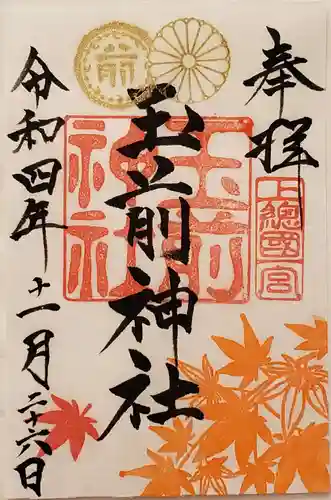 奉拝
上總國一宮
玉前神社
玉前
神社
令和四年十一月二十六日